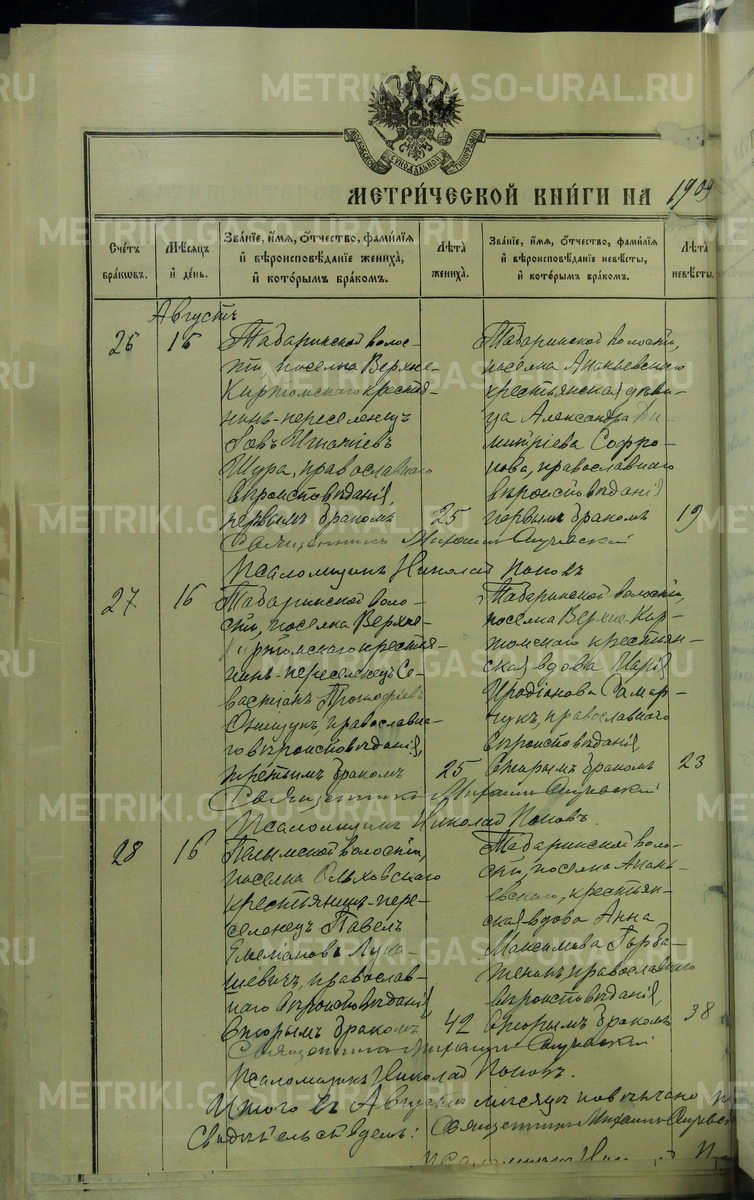 МЕТРИ́ЧЕСКОЙ КНИ́ГИ НА 1909
Сче́тъ бра́ковъ.
Мѣ́сяцъ и҆ де́нь.
Зва́ніе, и҆́мя, ѻ҆́тчество, фами́лія и҆ вѣроисповѣ́даніе жениха̀, и҆ кото́рымъ бра́комъ.
Лѣ́та жениха̀.
Зва́ніе, и҆́мя, ѻ҆́тчество, фами́лія и҆ вѣроисповѣ́даніе невѣ́сты, и҆ кото́рымъ бра́комъ.
Лѣ́та невѣ́сты.
Августъ
26
16
Табаринской волос-
ти, поселка Верхне-
Киртомскаго крестья-
нинъ-переселенецъ
Іовъ Игнатіевъ
Шура, православнаго
вѣроисповѣданія,
первымъ бракомъ
25
Табаринской волости,
поселка Ананьевскаго
крестьянская дѣви-
ца Александра Ди-
митріева Софро-
нова, православнаго
вѣроисповѣданія
первымъ бракомъ
19
Священникъ Михаилъ
Псаломщикъ Николай Поповъ
27
16
Табаринской воло-
сти, поселка Верхне-
Киртомскаго крестья-
нинъ-переселенецъ Се-
вастіанъ Прокофіевъ
Онищукъ, православна-
го вѣроисповѣданія,
третьимъ бракомъ
25
Табаринской волости,
поселка Верхне-Кир-
томскаго крестьян-
ская вдова Марія
Иродіонова Самар-
чукъ, православнаго
вѣроисповѣданія
вторымъ бракомъ
23
Священникъ Михаилъ
Псаломщикъ Николай Поповъ.
28
16
Пелымской волости,
поселка Ольховскаго
крестьянинъ-пере-
селенецъ Павелъ
Емеліановъ Лука-
шевичъ, православ-
наго вѣроисповѣданія,
вторымъ бракомъ
42
Табаринской воло-
сти, поселка Анань-
евскаго, крестьян-
ская вдова Анна
Максимова Горба-
женокъ православнаго
вѣроисповѣданія,
вторымъ бракомъ
38
Священникъ Михаилъ
Псаломщикъ Николай Поповъ.
Итого въ Августѣ мѣсяцѣ повѣнчано
Свидѣтельствуемъ: Священникъ Михаилъ
Псаломщикъ
METRIKI.GASO-URAL.RU